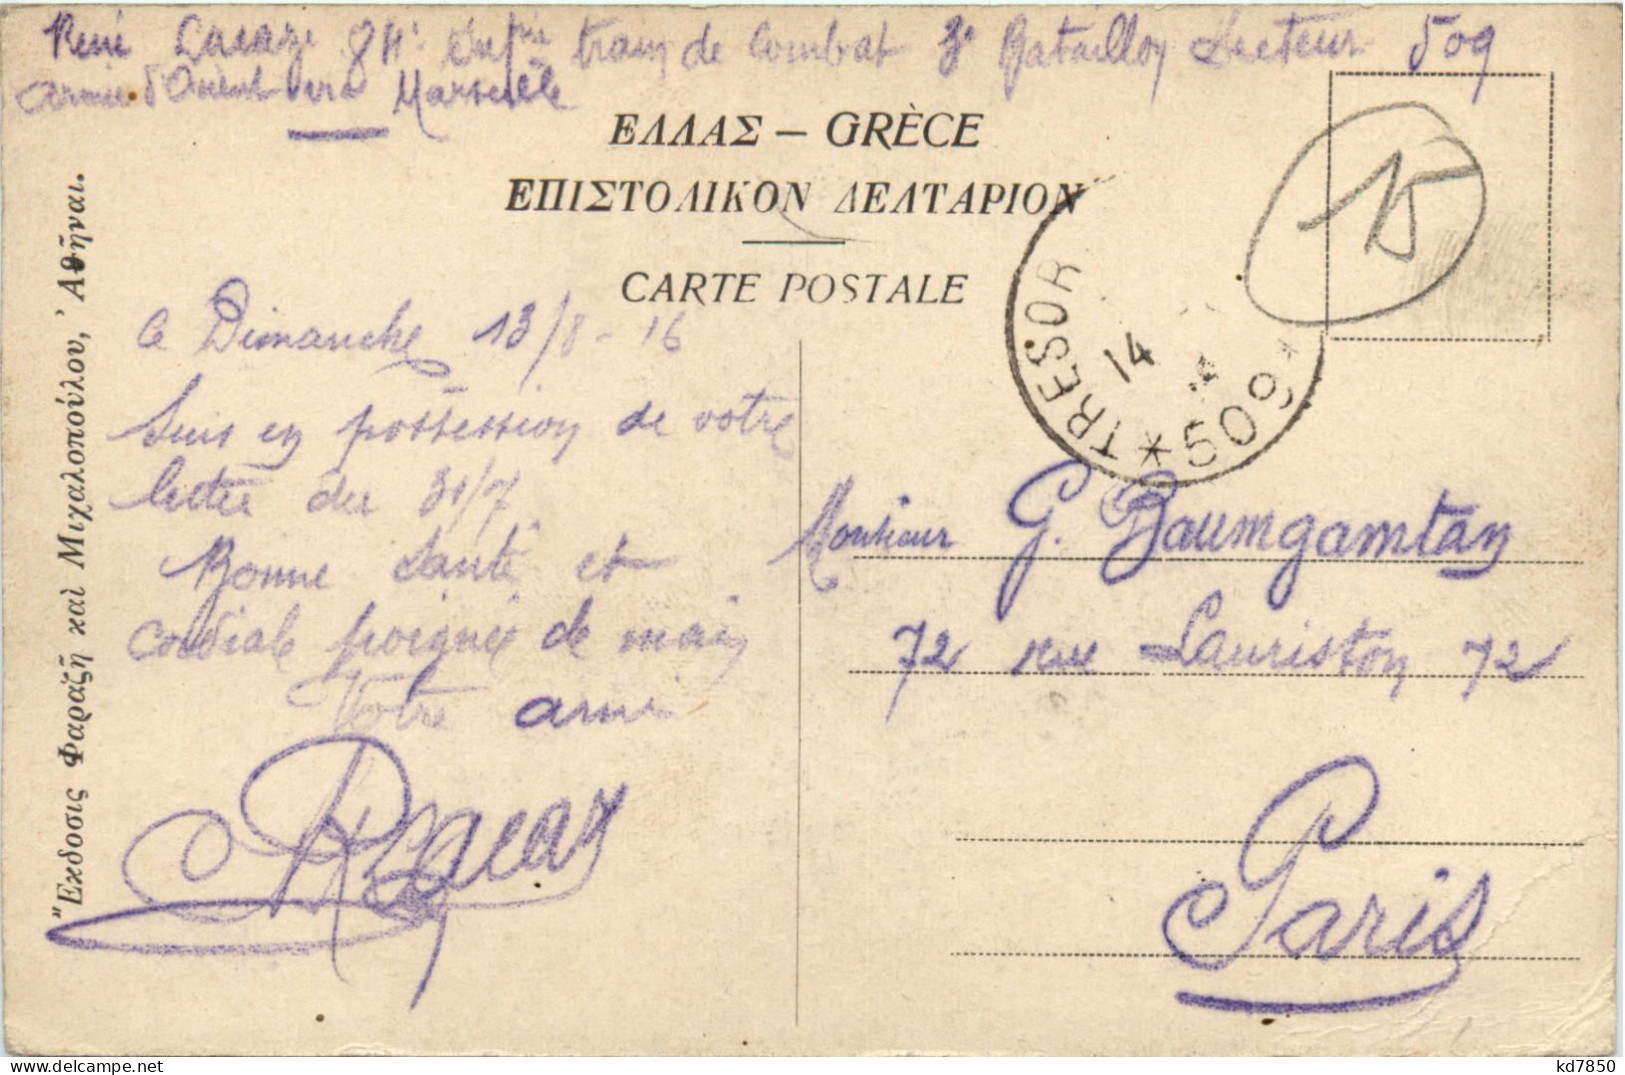 René Lacaze 84e Infrie train de Combat 3e Bataillon Secteur 509
Armée d'Orient via Marseille
ΕΛΛΑΣ — GRÈCE
ΕΠΙΣΤΟΛΙΚΟΝ ΔΕΛΤΑΡΙΟΝ
CARTE POSTALE
15
TRESOR * 509 *
14
Ἔκδοσις Φαραζῆ καὶ Μιχαλοπούλου, Ἀθῆναι.
le Dimanche 13/8-16
Suis en possession de votre
lettre du 31/7.
Bonne santé et
cordiale poignée de main
Votre ami
RLacaze
Monsieur G. Baumgamtan
72 rue Lauriston 72
Paris
kd7850